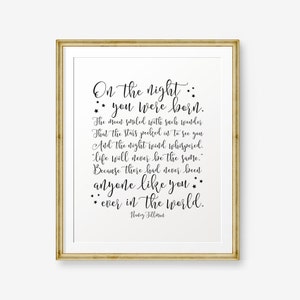 On the night
you were born,
The moon smiled with such wonder
That the stars peeked in to see you
And the night wind whispered,
"Life will never be the same."
Because there had never been
anyone like you
ever in the world.
Nancy Tillman